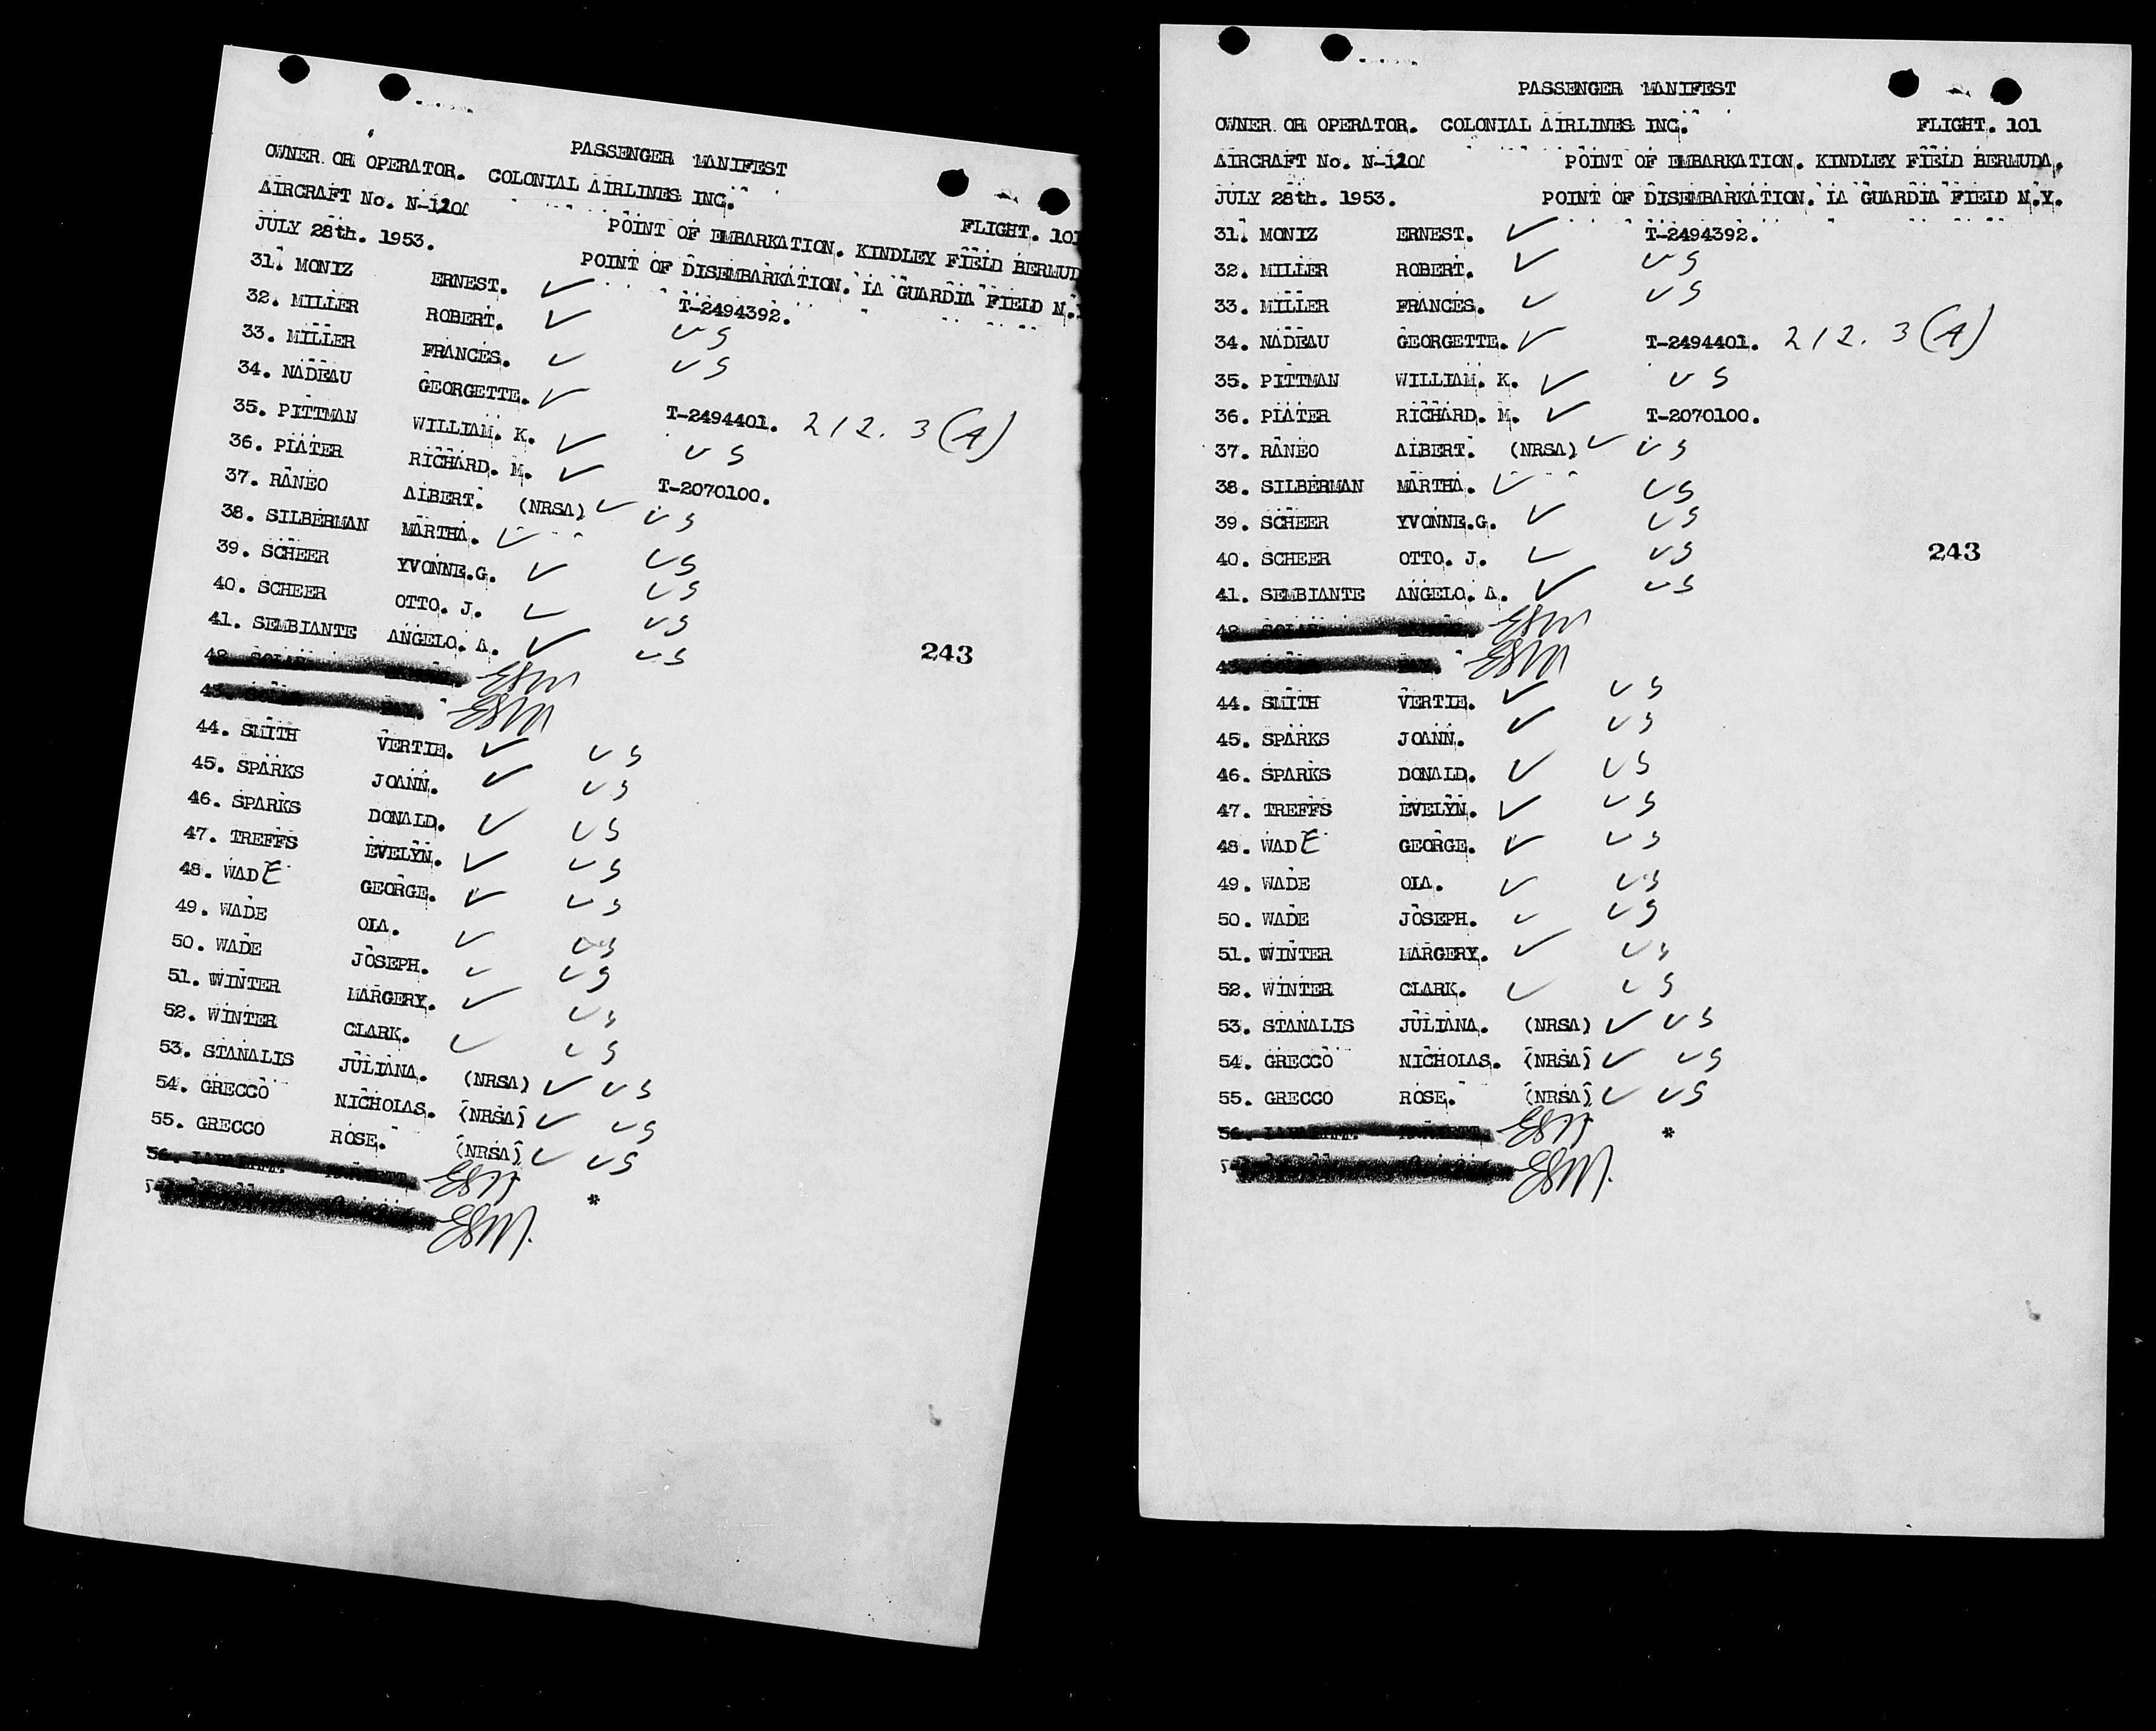 PASSENGER MANIFEST
OWNER OR OPERATOR. COLONIAL AIRLINES INC.
FLIGHT. 101
AIRCRAFT No.
POINT OF EMBARKATION. KINDLEY FIELD BERMUD
JULY 28th. 1953.
POINT OF DISEMBARKATION. LA GUARDIA FIELD N.Y
31. MONIZ ERNEST. ✓ T-2494392.
32. MILLER ROBERT. ✓ US
33. MILLER FRANCES. ✓ US
34. NADEAU GEORGETTE. ✓ T-2494401. 212. 3(A)
35. PITTMAN WILLIAM. K. ✓ US
36. PLATER RICHARD. M. ✓ T-2070100.
37. RANEO ALBERT. (NRSA) ✓ US
38. SILBERMAN MARTHA. ✓ US
39. SCHEER YVONNE.G. ✓ US
40. SCHEER OTTO. J. ✓ US
243
41. SEMBIANTE ANGELO. A. ✓ US
42.
43.
44. SMITH VERTIE. ✓ US
45. SPARKS JOANN. ✓ US
46. SPARKS DONALD. ✓ US
47. TREFFS EVELYN. ✓ US
48. WADE GEORGE. ✓ US
49. WADE OLA. ✓ US
50. WADE JOSEPH. ✓ US
51. WINTER MARGERY. ✓ US
52. WINTER CLARK. ✓ US
53. STANALIS JULIANA. (NRSA) ✓ US
54. GRECCO NICHOLAS. (NRSA) ✓ US
55. GRECCO ROSE. (NRSA) ✓ US
56. *
PASSENGER MANIFEST
OWNER OR OPERATOR. COLONIAL AIRLINES INC. FLIGHT. 101
AIRCRAFT No. POINT OF EMBARKATION. KINDLEY FIELD BERMUDA.
JULY 28th. 1953. POINT OF DISEMBARKATION. LA GUARDIA FIELD N.Y.
31. MONIZ ERNEST. ✓ T-2494392.
32. MILLER ROBERT. ✓ US
33. MILLER FRANCES. ✓ US
34. NADEAU GEORGETTE. ✓ T-2494401. 212. 3(A)
35. PITTMAN WILLIAM. K. ✓ US
36. PLATER RICHARD. M. ✓ T-2070100.
37. RANEO ALBERT. (NRSA) ✓ US
38. SILBERMAN MARTHA. ✓ US
39. SCHEER YVONNE.G. ✓ US
40. SCHEER OTTO. J. ✓ US
243
41. SEMBIANTE ANGELO. A. ✓ US
42.
43.
44. SMITH VERTIE. ✓ US
45. SPARKS JOANN. ✓ US
46. SPARKS DONALD. ✓ US
47. TREFFS EVELYN. ✓ US
48. WADE GEORGE. ✓ US
49. WADE OLA. ✓ US
50. WADE JOSEPH. ✓ US
51. WINTER MARGERY. ✓ US
52. WINTER CLARK. ✓ US
53. STANALIS JULIANA. (NRSA) ✓ US
54. GRECCO NICHOLAS. (NRSA) ✓ US
55. GRECCO ROSE. (NRSA) ✓ US
56. *